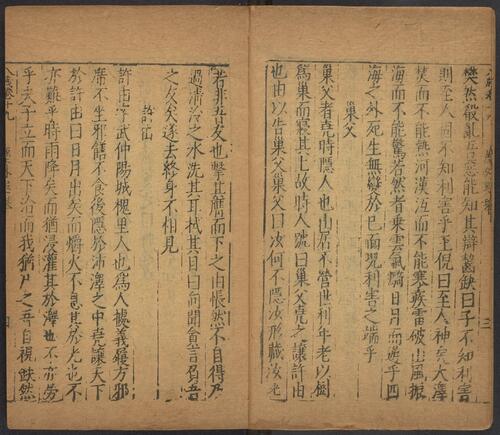 樊然殽亂吾惡能知其辯齧缺曰子不知利害
則至人固不知利害乎王倪曰至人神矣大澤
焚而不能熱河漢沍而不能寒疾雷破山風振
海而不能驚若然者乘雲氣騎日月而遊乎四
海之外死生無變於己而況利害之端乎
巢父
巢父者堯時隱人也山居不營世利年老以樹
爲巢而寢其上故時人號曰巢父堯之讓許由
也由以告巢父巢父曰汝何不隱汝形藏汝光
若非吾友也擊其膺而下之由悵然不自得乃
過清泠之水洗其耳拭其目曰向聞貪言負吾
之友矣遂去終身不相見
許由
許由字武仲陽城槐里人也爲人據義履方邪
席不坐邪饍不食後隱於沛澤之中堯讓天下
於許由曰日月出矣而爝火不息其於光也不
亦難乎時雨降矣而猶浸灌其於澤也不亦勞
乎夫子立而天下治而我猶尸之吾自視缺然